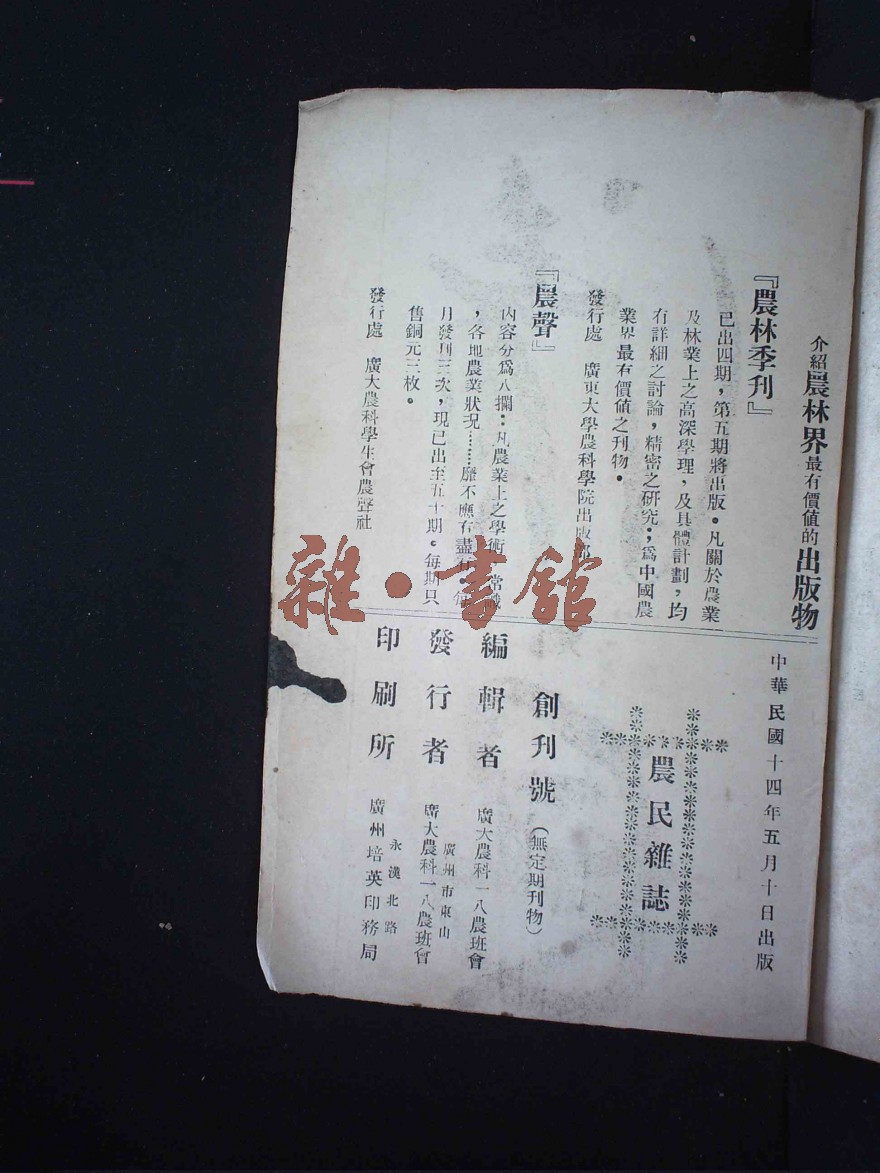 介紹農林界最有價値的出版物
『農林季刋』
已出四期，第五期將出版。凡關於農業
及林業上之高深學理，及具體計劃，均
有詳細之討論，精密之研究；爲中國農
業界最有價值之刋物。
發行處　廣東大學農科學院出版部
『農聲』
內容分爲八攔：凡農業上之學術
，各地農業狀况……靡不應有盡
月發刋三次，現已出至五十期。每期只
售銅元三枚。
發行處　廣大農科學生會農聲社
中華民國十四年五月十日出版
農民雜誌
創刋號（無定期刋物）
編輯者　廣大農科一八農班會
廣州市東山
發行者　廣大農科一八農班會
永漢北路
印刷所　廣州培英印務局
雜·書館